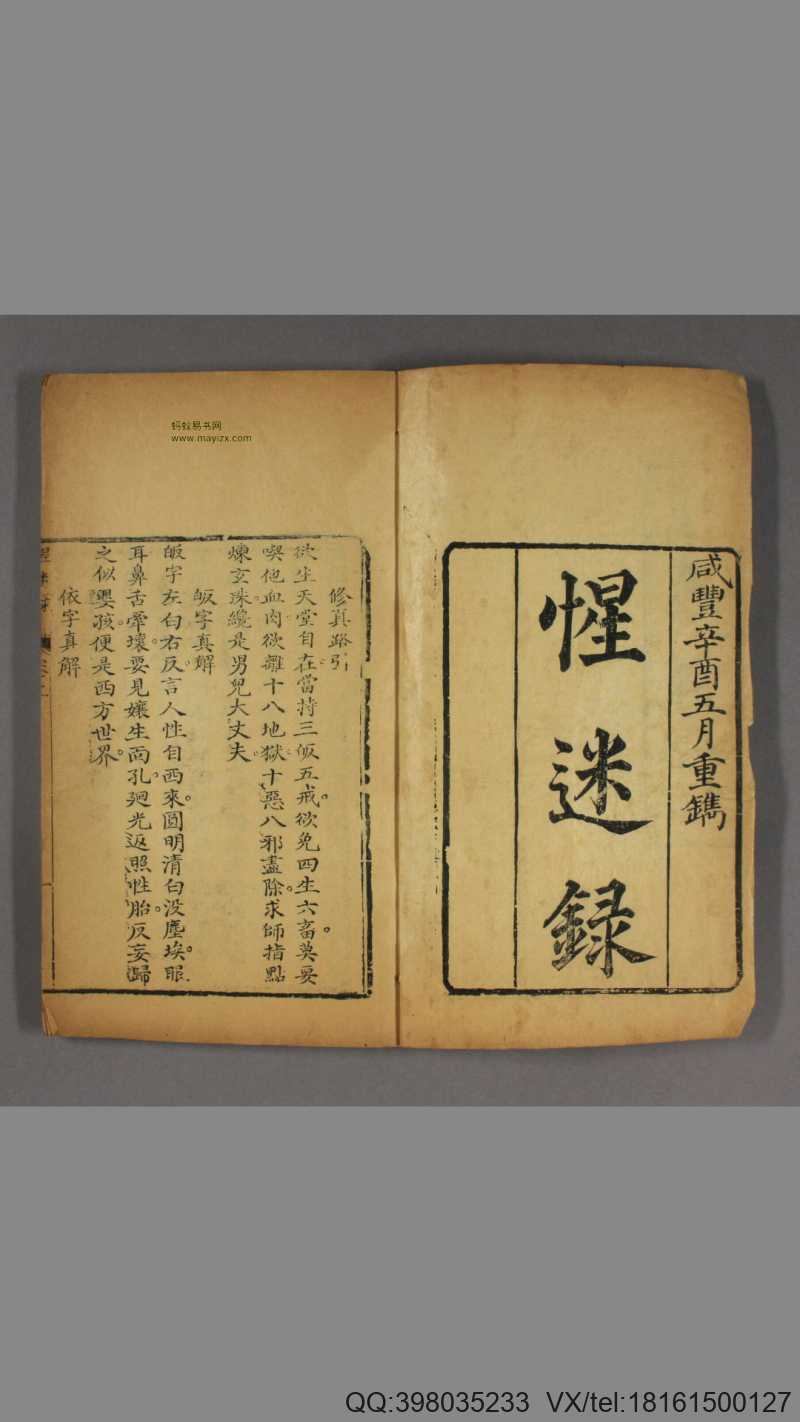 咸豐辛酉五月重鐫
惺迷録
修真路引
欲生天堂自在當持三皈五戒。欲免四生六畜。莫要
喫他血肉欲離十八地獄十惡八邪盡除。求師指點
煉玄珠。纔是男兒大丈夫。
皈字真解
皈字左白右反。言人性自西來。圓明清白没塵埃。眼
耳鼻舌牽壞。要見孃生面孔。廻光返照性胎。反妄歸
之似嬰孩。便是西方世界。
依字真解
蚂蚁易书网
www.mayizx.com
QQ:398035233 VX/tel:18161500127